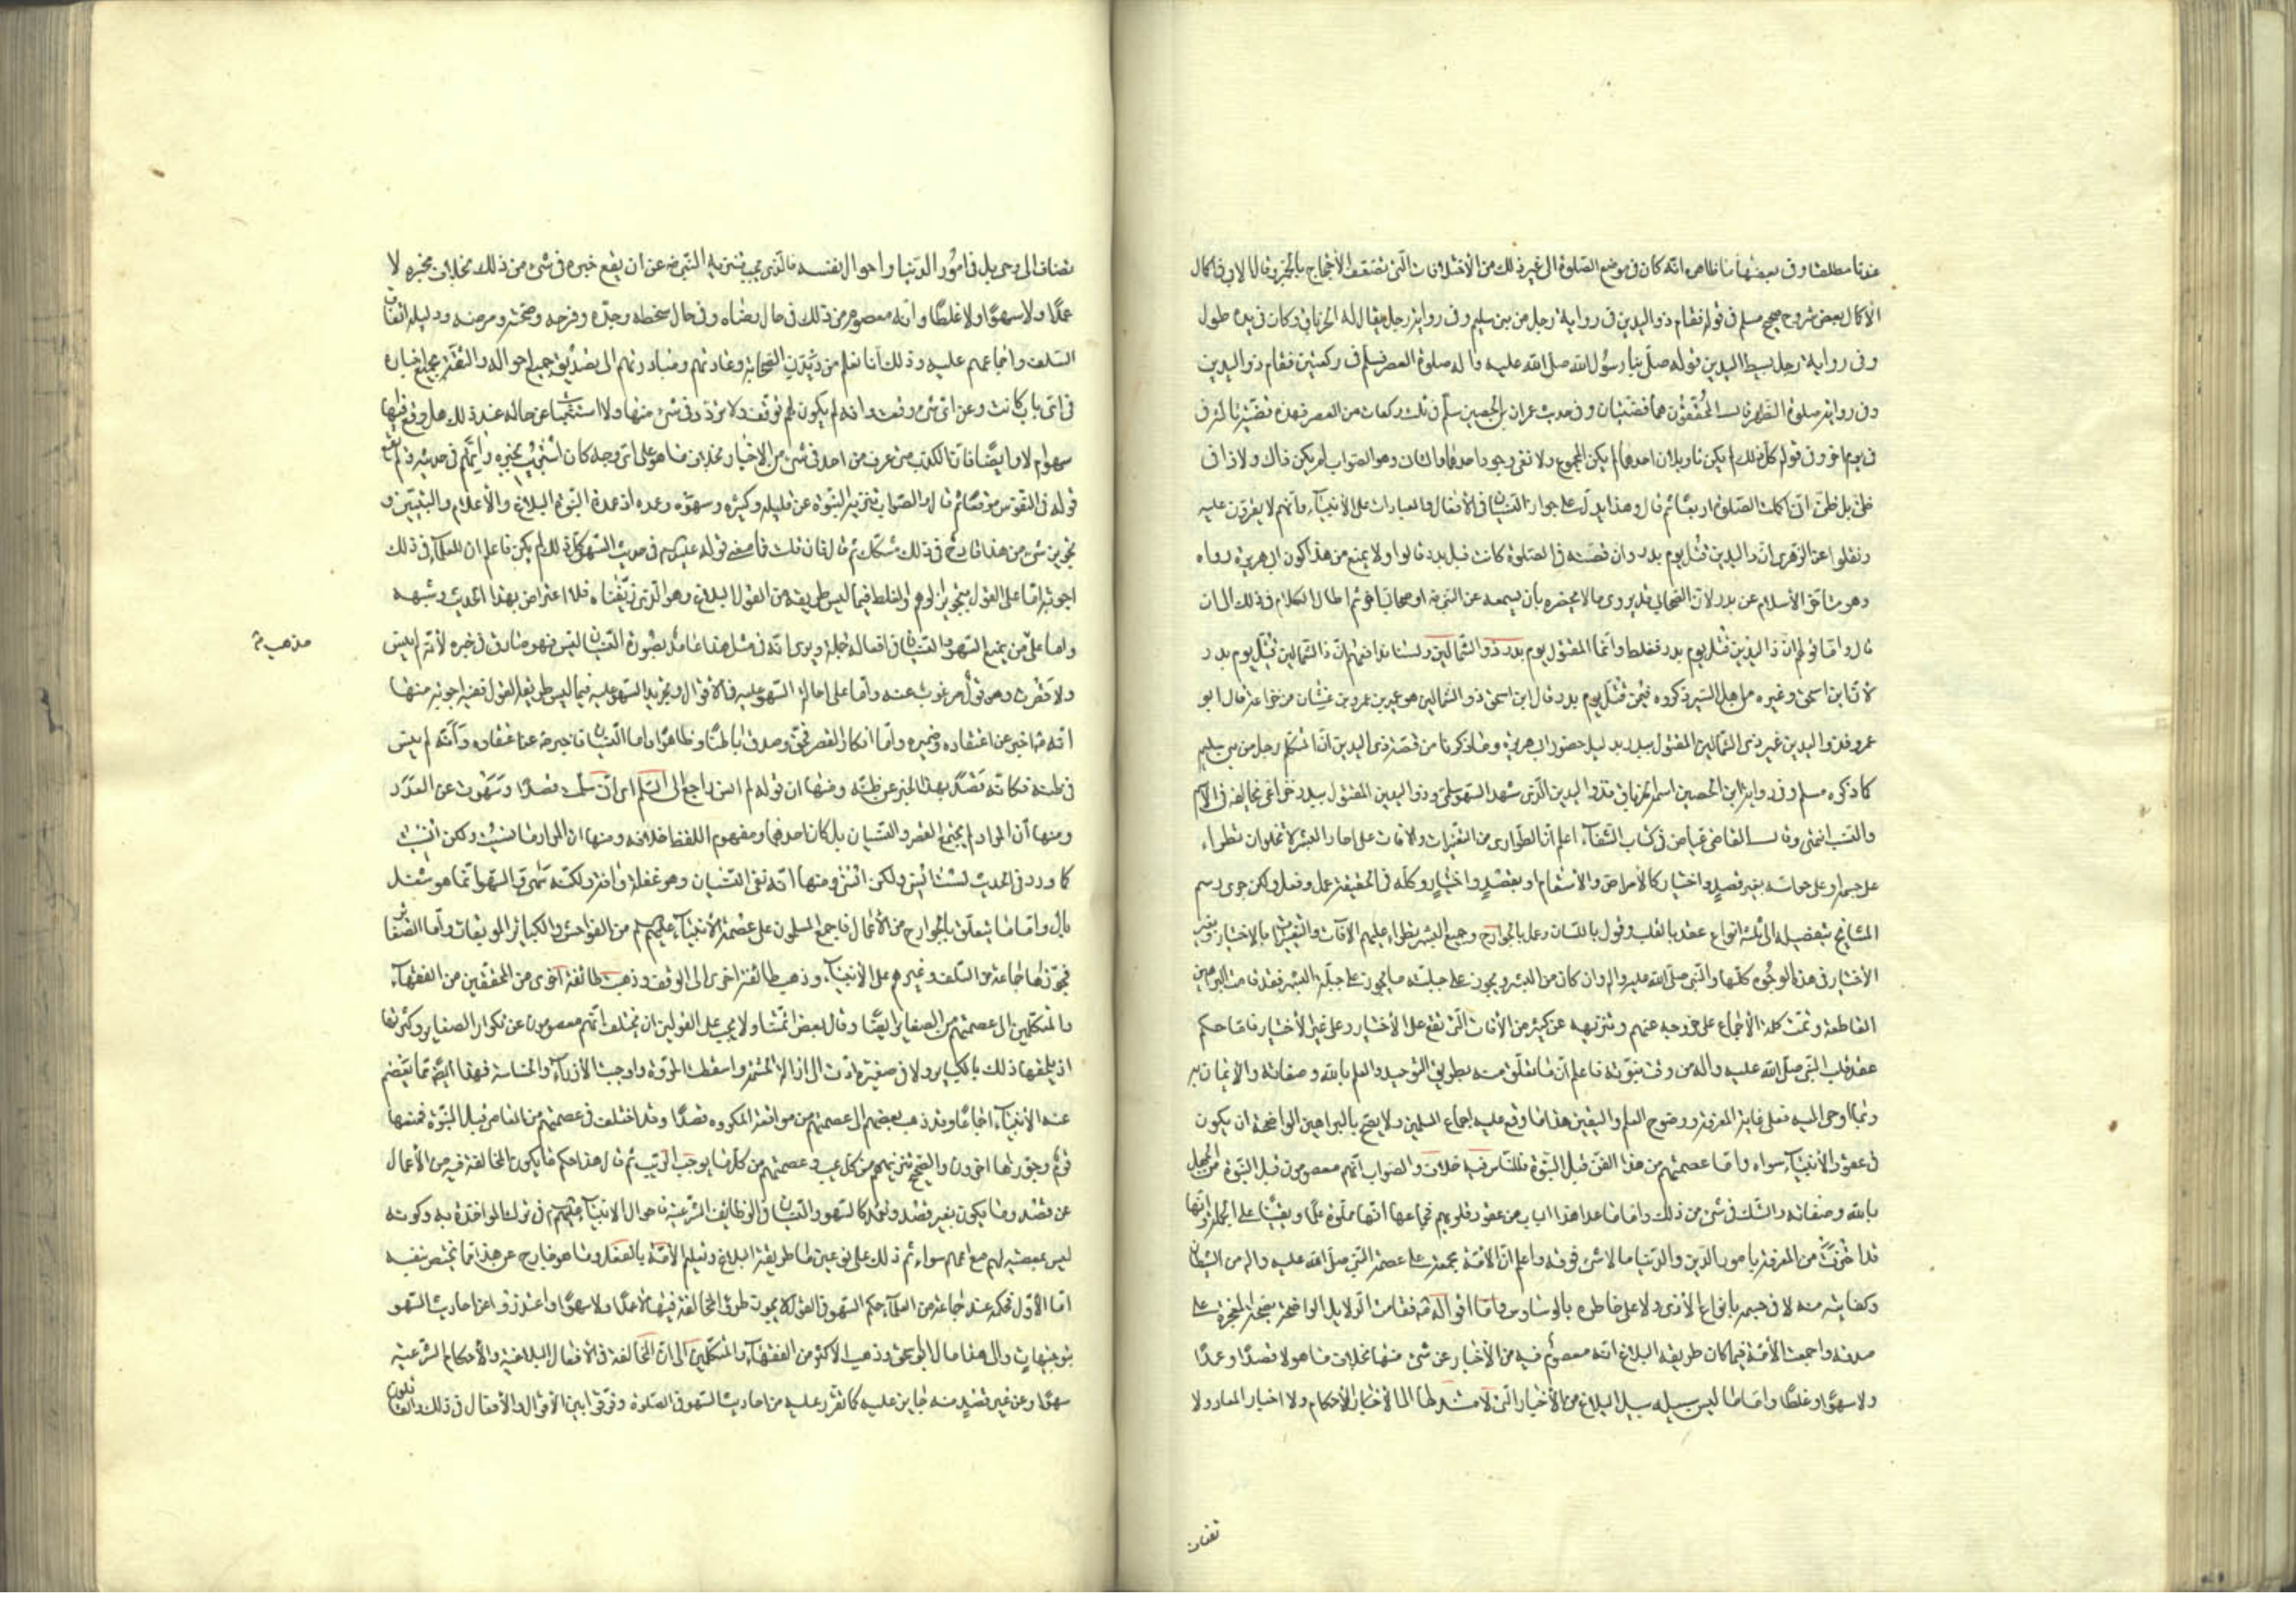 عندنا مطلقا وفي بعضها ما ظاهره انه كان في موضع الصلوة الى غير ذلك من الاختلافات التي تضعف الاحتجاج بالخبر وقال الابي في اكمال
الاكمال بعض شروح صحيح مسلم في قوله فقام ذو اليدين في رواية رجل من بني سليم وفي رواية رجل يقال له الخرباق وكان في يده طول
وفي رواية رجل بسيط اليدين قوله صلى بنا رسول الله صلى الله عليه واله صلوة العصر فسلم في ركعتين فقام ذو اليدين
وفي رواية صلوة الظهر قال المحققون هما قضيتان وفي حديث عمران بن الحصين سلم في ثلث ركعات من العصر فهذه قضية ثالثة في
في يوم اخر وفي قوله كل ذلك لم يكن تاويلان احدهما لم يكن المجموع ولا نفى وجود احدهما والثاني وهو الصواب لم يكن ذاك ولا ذا في
ظني بل ظني اني اكملت الصلوة اربعا ثم قال وهذا يدل على جواز النسيان في الافعال والعبادات على الانبياء وانهم لا يقرون عليه
ونقلوا عن الزهري ان ذا اليدين قتل يوم بدر وان قصته في الصلوة كانت قبل بدر قالوا ولا يمنع من هذا كون ابي هريرة رواه
وهو متاخر الاسلام عن بدر لان الصحابي قد يروي ما لا يحضره بان يسمعه عن النبي ص او صحابي اخر ثم اطال الكلام في ذلك الى ان
قال واما قولهم ان ذا اليدين قتل يوم بدر فغلط وانما المقتول يوم بدر ذو الشمالين ولسنا ندافعهم ان ذا الشمالين قتل يوم بدر
لان ابن اسحق وغيره من اهل السير ذكروه فيمن قتل يوم بدر قال ابن اسحق ذو الشمالين هو عمير بن عمرو بن غبشان من خزاعة قال ابو
عمرو فذو اليدين غير ذي الشمالين المقتول ببدر بدليل حضور ابي هريرة وما ذكرنا من قصة ذي اليدين ان المتكلم رجل من بني سليم
كما ذكره مسلم وفي رواية ابن الحصين اسمه الخرباق فذو اليدين الذي شهد السهو سلمي وذو اليدين المقتول ببدر خزاعي يخالفه في الاسم
والنسب انتهى وقال القاضي عياض في كتاب الشفاء اعلم ان الطواري من التغيرات والافات على احاد البشر لا تخلو ان تطرأ
على جسمه او على حواسه بغير قصد واختيار كالامراض والاسقام او بقصد واختيار وكله في الحقيقة عمل وفعل ولكن جرى رسم
المشايخ بتفصيله الى ثلثة انواع عقد بالقلب وقول باللسان وعمل بالجوارح وجميع البشر تطرأ عليهم الافات والتغيرات بالاختيار وبغير
الاختيار في هذه الوجوه كلها والنبي صلى الله عليه واله وان كان من البشر ويجوز على جبلته ما يجوز على جبلة البشر فقد قامت البراهين
القاطعة وتمت كلمة الاجماع على خروجه عنهم وتنزيهه عن كثير من الافات التي تقع على الاختيار وعلى غير الاختيار فاما حكم
عقد قلب النبي صلى الله عليه واله من وقت نبوته فاعلم ان ما تعلق منه بطريق التوحيد والعلم بالله وصفاته والايمان به
وبما اوحى اليه فعلى غاية المعرفة ووضوح العلم واليقين هذا ما وقع عليه اجماع المسلمين ولا يصح بالبراهين الواضحة ان يكون
في عقود الانبياء سواه واما عصمتهم من هذا الفن قبل النبوة فللناس فيه خلاف والصواب انهم معصومون قبل النبوة من الجهل
بالله وصفاته والشك في شئ من ذلك واما ما عدا هذا الباب من عقود قلوبهم فجماعها انها مملوة علما ويقينا على الجملة وانها
قد احتوت من المعرفة بامور الدين والدنيا ما لا شئ فوقه واعلم ان الامة مجمعة على عصمة النبي صلى الله عليه واله من الشيطان
وكفايته منه لا في جسمه بانواع الاذى ولا على خاطره بالوساوس واما اقواله ص فقامت الدلايل الواضحة بصحة المعجزة على
صدقه واجمعت الامة فيما كان طريقه البلاغ انه معصوم فيه من الاخبار عن شئ منها بخلاف ما هو لا قصدا وعمدا
ولا سهوا وغلطا واما ما ليس سبيله سبيل البلاغ من الاخبار التي لا مستند لها الى الاخبار الاحكام ولا اخبار المعاد ولا
تضاف
تضاف الى وحي بل في امور الدنيا واحوال نفسه فالذي يجب تنزيه النبي ص عن ان يقع خبره في شئ من ذلك بخلاف مخبره لا
عمدا ولا سهوا ولا غلطا وانه معصوم من ذلك في حال رضاه وفي حال سخطه وجده وفرحه وصحته ومرضه ودليله اتفاق
السلف واجماعهم عليه وذلك انا نعلم من دين الصحابة وعادتهم ومبادرتهم الى تصديق جميع احواله والثقة بجميع اخباره
في اي باب كانت وعن اي شئ وقعت وانه لم يكون لهم توقف ولا تردد في شئ منها ولا استثبات عن حاله عند ذلك هل وقع فيها
سهو ام لا وايضا فان الكذب متى عرف من احد في شئ من الاخبار بخلاف ما هو على اي وجه كان استريب بخبره واتهم في حديثه ولم يقع
قوله في النفوس موقعا ثم قال والصواب تنزيه النبوة عن قليله وكثيره وسهوه وعمده اذ عمدة النبوة البلاغ والاعلام والتبيين و
تجويز شئ من هذا قادح في ذلك مشكك ثم قال فان قلت فما معنى قوله عليه السلام في حديث السهو كل ذلك لم يكن فاعلم ان للعلماء في ذلك
اجوبة اما على القول بتجويز الوهم والغلط فيما ليس طريقه من القول البلاغ وهو الذي زيفناه فلا اعتراض بهذا الحديث وشبهه
واما على من يمنع السهو والنسيان في افعاله جملة ويرى انه في مثل هذا عامد لصورة النسيان ليسن فهو صادق في خبره لانه لم ينس
مذهب
ولا قصرت وهو قول مرغوب عنه واما على احالة السهو عليه في الاقوال وتجويز السهو عليه فيما ليس طريقه القول ففيه اجوبة منها
انه ص اخبر عن اعتقاده وضميره واما انكار القصر فحق وصدق باطنا وظاهرا واما النسيان فاخبر ص عن اعتقاده وانه لم ينس
في ظنه فكانه قصد بهذا الخبر عن ظنه ومنها ان قوله لم انس راجع الى السلام اي اني سلمت قصدا وسهوت عن العدد
ومنها ان المراد لم يجتمع القصر والنسيان بل كان احدهما ومفهوم اللفظ خلافه ومنها ان المراد ما نسيت ولكن انسيت
كما ورد في الحديث لست انسى ولكن انسى ومنها انه نفى النسيان وهو غفلة وافة ولكنه سهى والسهو انما هو شغل
بال واما ما يتعلق بالجوارح من الاعمال فاجمع المسلمون على عصمة الانبياء عليهم السلام من الفواحش والكبائر الموبقات واما الصغائر
فجوزها جماعة من السلف وغيرهم على الانبياء وذهب طائفة اخرى الى الوقف وذهبت طائفة اخرى من المحققين من الفقهاء
والمتكلمين الى عصمتهم من الصغاير ايضا وقال بعض ائمتنا ولا يجب على القولين ان يختلف انهم معصومون عن تكرار الصغاير وكثرتها
اذ يلحقها ذلك بالكباير ولا في صغيرة ادت الى ازالة الحشمة واسقطت المروة واوجبت الازراء والخساسة فهذا ايضا مما يعصم
عنه الانبياء اجماعا وقد ذهب بعضهم الى عصمتهم من مواقعة المكروه قصدا وقد اختلف في عصمتهم من المعاصي قبل النبوة فمنعها
قوم وجوزها اخرون والصحيح تنزيههم من كل عيب وعصمتهم من كل ما يوجب الريب ثم قال هذا حكم ما يكون المخالفة فيه من الاعمال
عن قصد وما يكون بغير قصد وتعمد كالسهو والنسيان في الوظائف الشرعية فاحوال الانبياء عليهم السلام في ترك المواخذة به وكونه
ليس بمعصية لهم مع اممهم سواء ثم ذلك على نوعين ما طريقه البلاغ وتعليم الامة بالفعل وما هو خارج عن هذا مما يختص بنفسه
اما الاول فحكمه عند جماعة من العلماء حكم السهو في القول لا يجوز طرو المخالفة فيها لا عمدا ولا سهوا واعتذروا عن احاديث السهو
بتوجيهات والى هذا مال ابو اسحق وذهب الاكثر من الفقهاء والمتكلمين الى ان المخالفة في الافعال البلاغية والاحكام الشرعية
سهوا وعن غير قصد منه جايز عليه كما تقرر عليه من احاديث السهو في الصلوة وفرقوا بين الاقوال والافعال في ذلك والقائلون